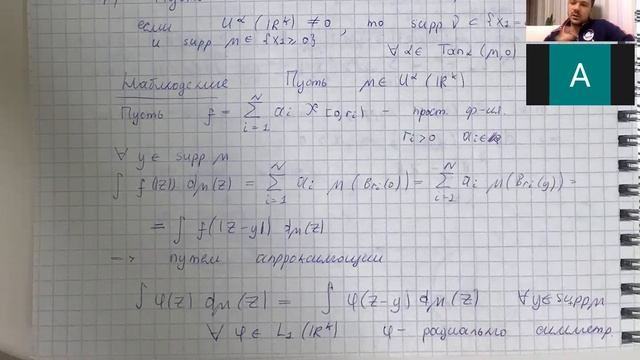 если U^α(ℝ^k) ≠ 0, то supp ν ⊂ {x₁ =
и supp μ ∈ {x₁ ≥ 0} ∀ α ∈ Tan_α(μ,0)
Наблюдение Пусть μ ∈ U^α(ℝ^k)
Пусть f = ∑_{i=1}^{N} a_i χ_{[0,r_i)} – прост. ф-ия.
r_i > 0 a_i ∈
∀ y ∈ supp μ
∫ f(|z|) dμ(z) = ∑_{i=1}^{N} a_i μ(B_{r_i}(0)) = ∑_{i=1}^{N} a_i μ(B_{r_i}(y)) =
= ∫ f(|z-y|) dμ(z)
—> путем аппроксимации
∫ φ(z) dμ(z) = ∫ φ(z-y) dμ(z) ∀ y ∈ supp μ
∀ φ ∈ L₁(ℝ^k) φ – радиально симметр.
A